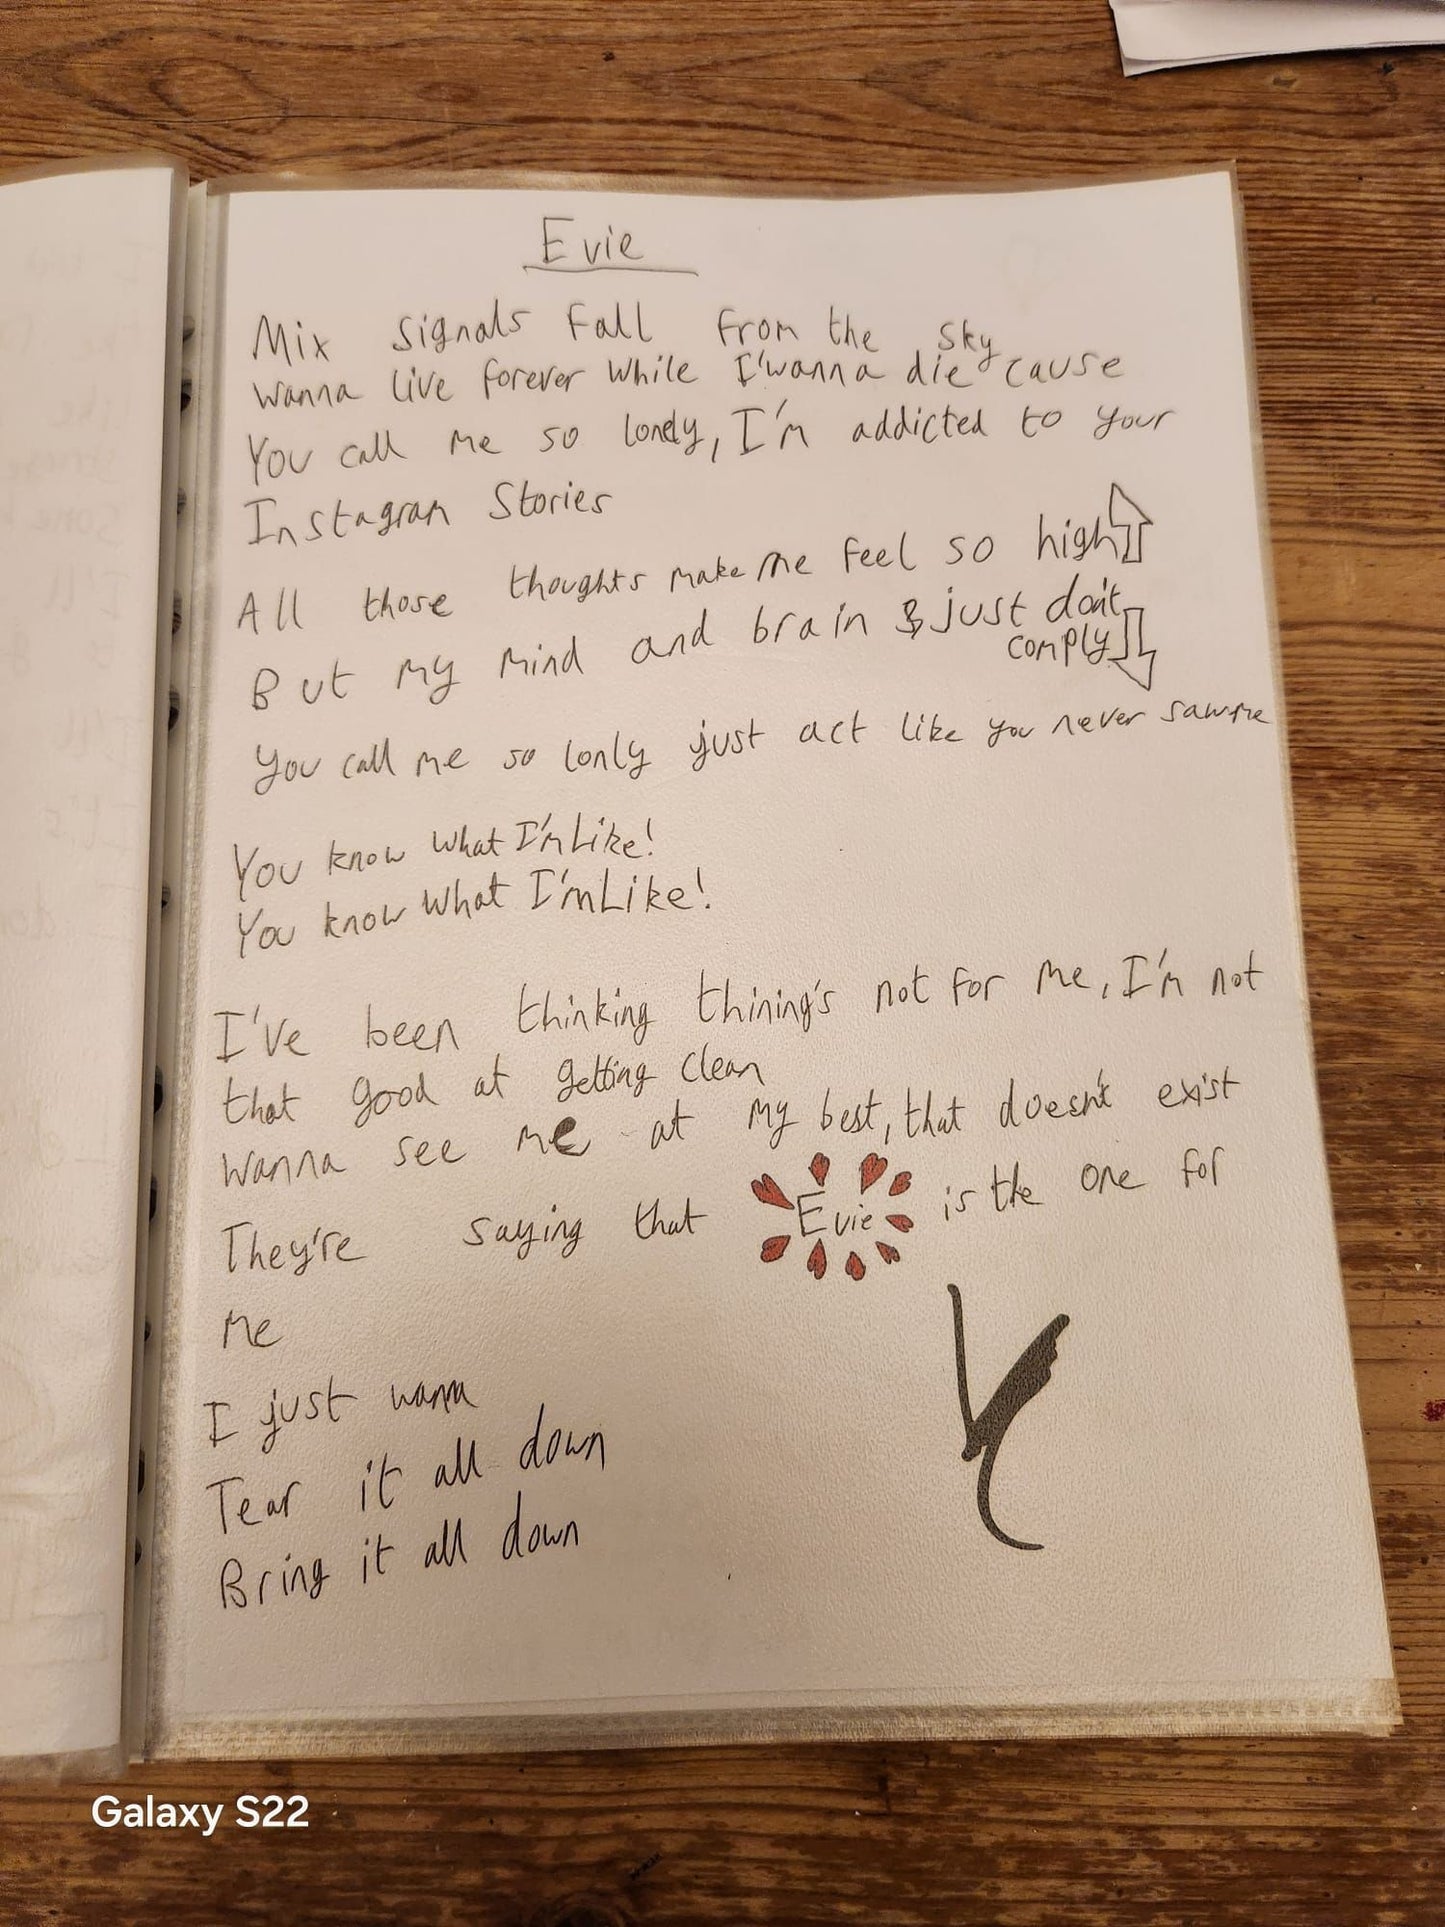 Evie
Mix signals fall from the sky
wanna live forever while I'wanna die cause
You call me so lonely, I'm addicted to your
Instagram Stories
All those thoughts make me feel so high
But my mind and brain just don't
comply
you call me so lonly just act like you never saw me
You know what I'm Like!
You know what I'm Like!
I've been thinking thining's not for me, I'm not
that good at getting clean
wanna see me at my best, that doesn't exist
They're saying that Evie is the one for
me
I just wanna
Tear it all down
Bring it all down
Galaxy S22